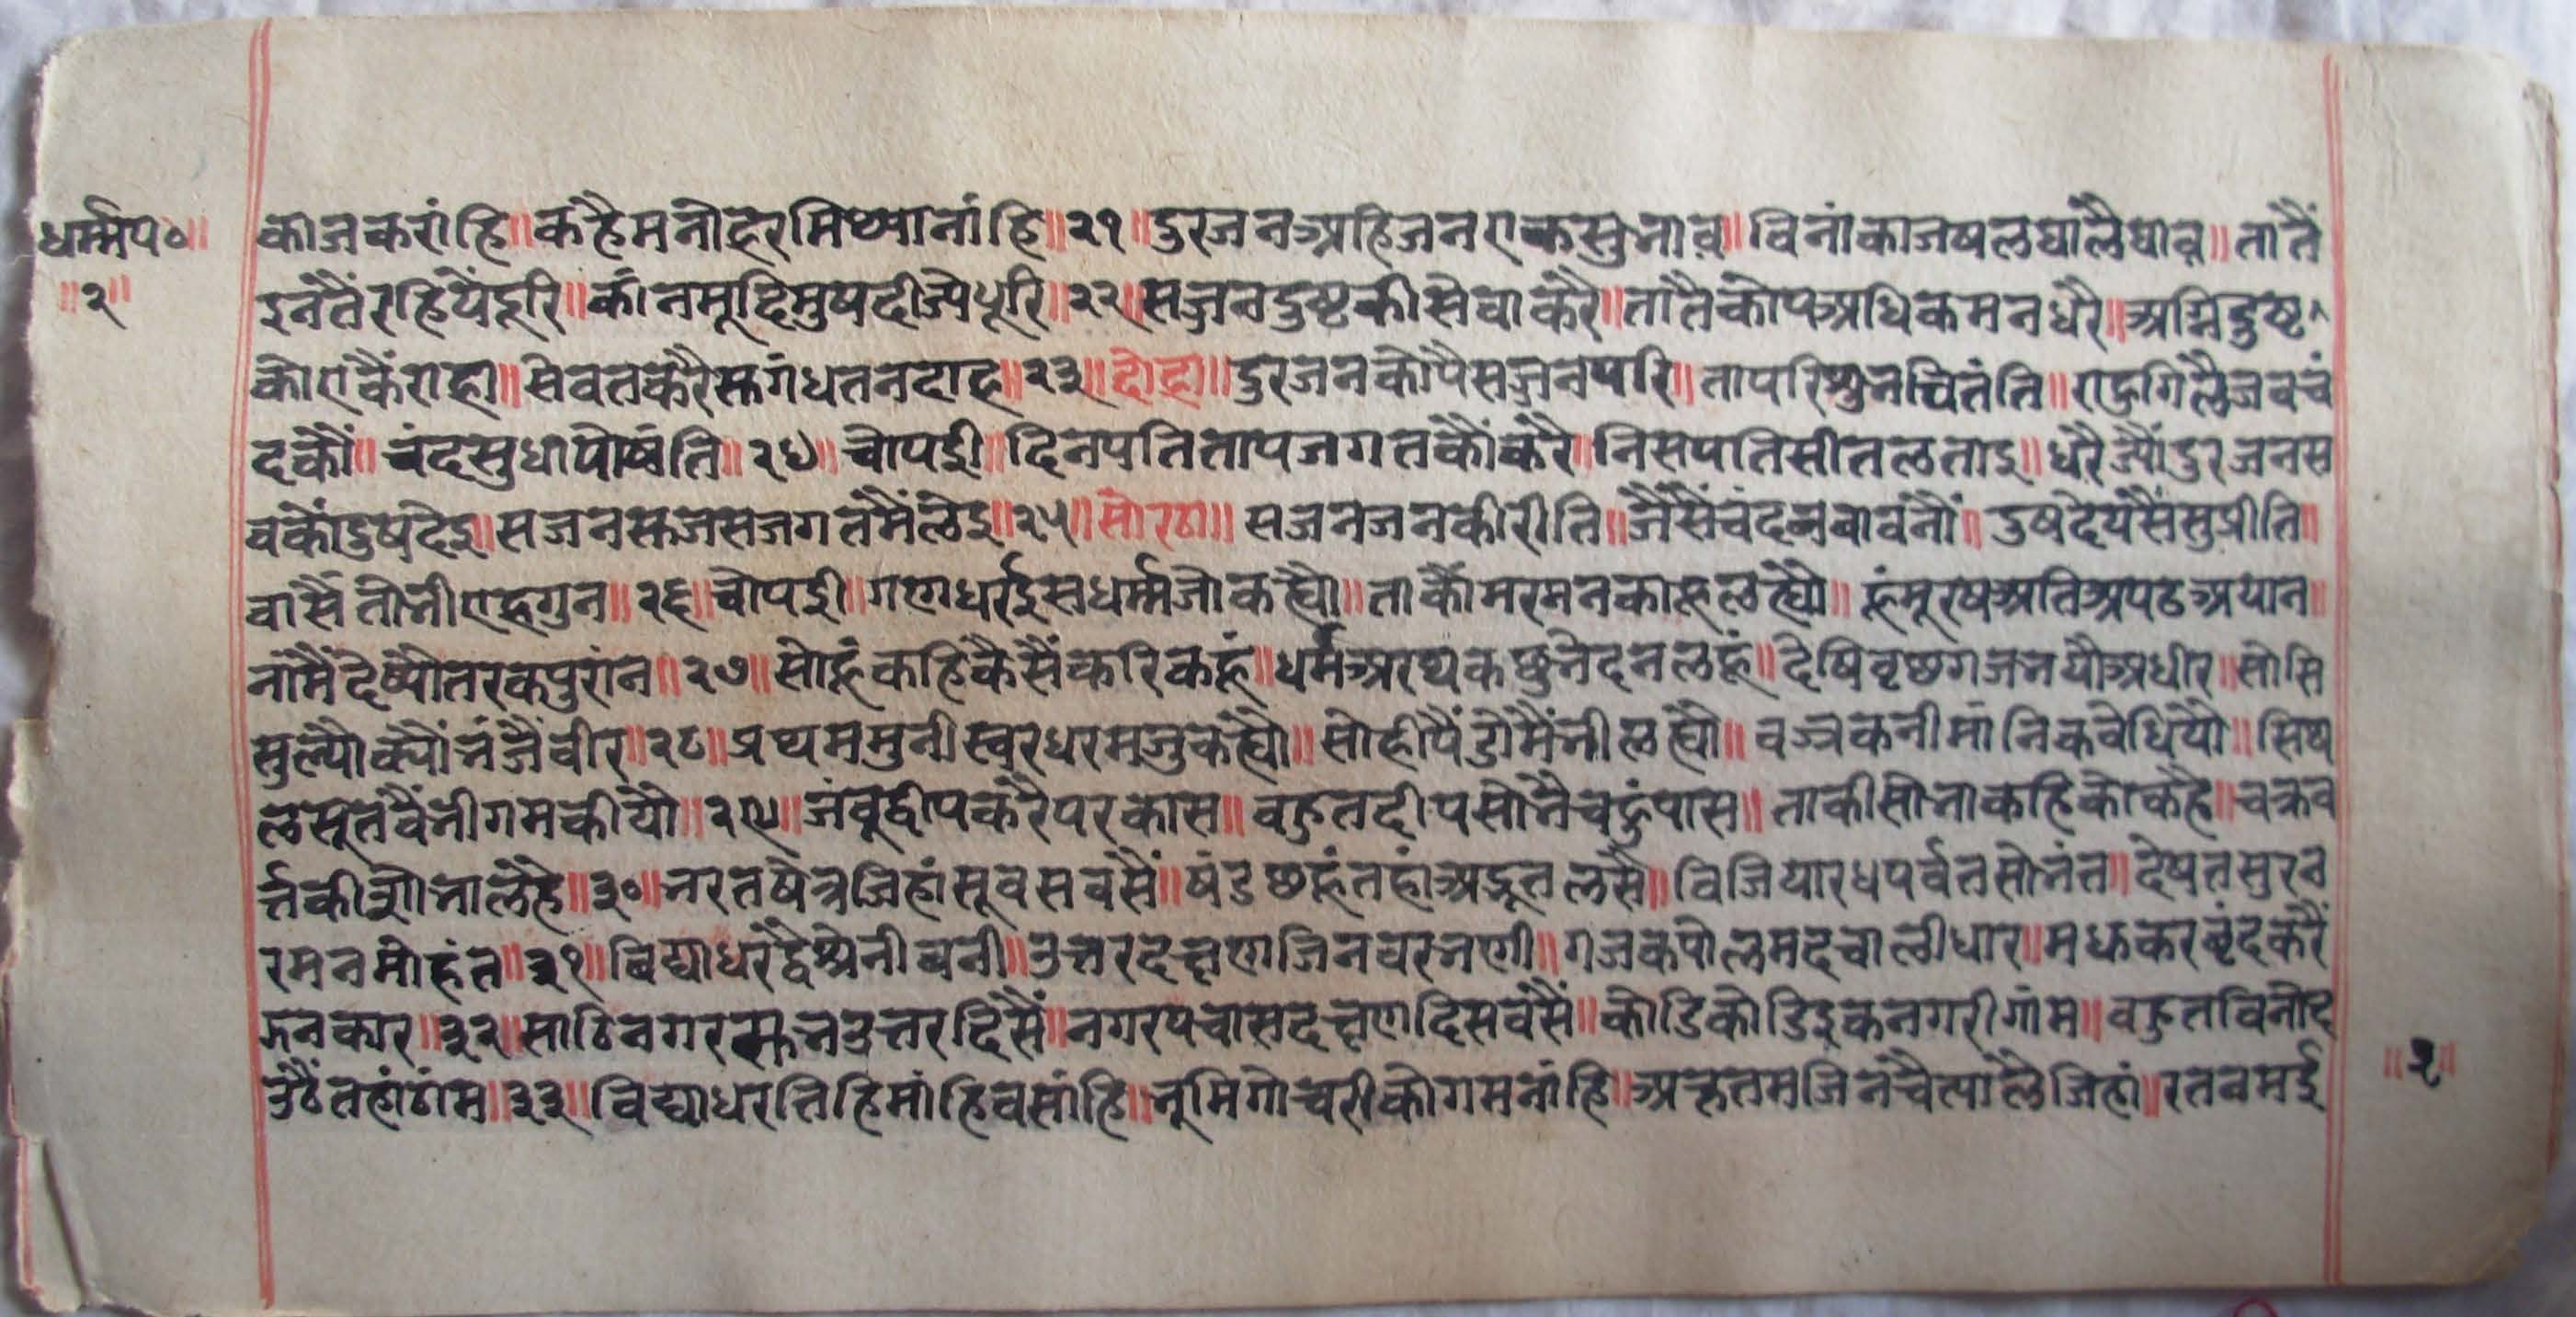 धर्म्मप०॥ काजकरांहि॥कहैमनोहरमिथ्यानांहि॥२१॥दुरजनअहिजनएकसुभाव॥विनांकाजषलघालैघाव॥तातैं
॥२॥ इनतैंरहियैंदूरि॥कांनमूदिमुषदीज्यैधूरि॥२२॥सज्जनदुष्टकीसेवाकरै॥तातैकोपअधिकमनधरै॥अग्निदुष्ट
कोएकैंराहा॥सेवतकरैसुगंधतनदाह॥२३॥दोहा॥दुरजनकोपैसज्जनपरि॥तापरिशुभचिंतंति॥राहुगिलैजबचं
दकौं॥चंदसुधापोषंति॥२४॥चोपइी॥दिनपतितापजगतकौंकरै॥निसपतिसीतलताइ॥धरैज्यौंदुरजनस
वकौंदुषदेइ॥सजनसुजसजगतमैंलेइ॥२५॥सोरठा॥सजनजनकीरीति॥जैसैंचंदनबावनौं॥दुषदेयसैंसुप्रीति॥
वासैंतोभीएहगुन॥२६॥चोपइी॥गणधरईसधर्म्मजोकह्यौ॥ताकौंमरमनकाहूलह्यौ॥हूंमूरषअतिअपढअयान॥
नांमैंदेष्यौतरकपुरांन॥२७॥सोहूंकहिकैसैंकरिकहूं॥धर्मअरथकछुभेदनलहूं॥देषिवृछगजभयौअधीर॥सोसि
सुल्यौक्यौंभंजैवीर॥२८॥प्रथममुनीस्वरधरमजुकह्यौ॥सोहीपैंडोमैंभीलह्यौ॥वज्रकनीमांनिकवेधियौ॥सिथ
लसूतवैंभीगमकीयौ॥२९॥जंबूद्वीपकरैपरकास॥वहुतदीपसोभैचहुंपास॥ताकीसोभाकहिकोकहै॥चक्रव
र्त्तकीओभालहै॥३०॥भरतषेत्रजिहांसूवसवसैं॥षंडछहूंतहांअद्भूतलसै॥विजियारधपर्वतसोभंत॥देषतसुरन
रमनमोहंत॥३१॥विद्याधरंद्वैश्रेनीबनी॥उत्तरदछ्यणजिनवरभणी॥गजकपोलमदचालीधार॥मधुकरवृंदकरैं
झनकार॥३२॥साठिनगरसुभउत्तरदिसैं॥नगरपचासदछ्यणदिसवसैं॥कोडिकोडिइकनगरीगांम॥वहुतविनोद
उठैंतहांठांम॥३३॥विद्याधरतिहिमांहिवसांहि॥भूमिगोचरीकोगमनांहि॥अकृतमजिनचैत्यालैजिहां॥रतनमई
॥२॥